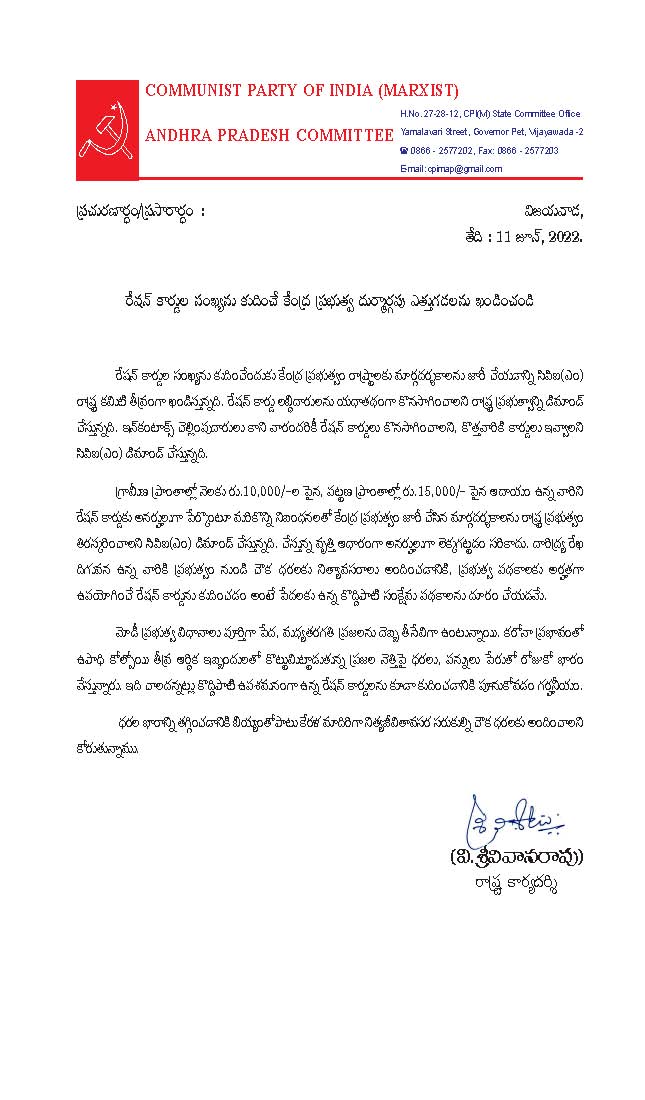 COMMUNIST PARTY OF INDIA (MARXIST)
ANDHRA PRADESH COMMITTEE
H.No. 27-28-12, CPI(M) State Committee Office
Yamalavari Street, Governor Pet, Vijayawada -2
☎ 0866 - 2577202, Fax: 0866 - 2577203
E-mail: cpimap@gmail.com
ప్రచురణార్థం/ప్రసారార్థం :
విజయవాడ,
తేది : 11 జూన్, 2022.
రేషన్ కార్డుల సంఖ్యను కుదించే కేంద్ర ప్రభుత్వ దుర్మార్గపు ఎత్తుగడలను ఖండించండి
రేషన్ కార్డుల సంఖ్యను కుదించేందుకు కేంద్ర ప్రభుత్వం రాష్ట్రాలకు మార్గదర్శకాలను జారీ చేయడాన్ని సిపిఐ(ఎం)
రాష్ట్ర కమిటి తీవ్రంగా ఖండిస్తున్నది. రేషన్ కార్డు లబ్ధిదారులను యధాతథంగా కొనసాగించాలని రాష్ట్ర ప్రభుత్వాన్ని డిమాండ్
చేస్తున్నది. ఇన్‌కంటాక్స్ చెల్లింపుదారులు కాని వారందరికీ రేషన్ కార్డులు కొనసాగించాలని, కొత్తవారికి కార్డులు ఇవ్వాలని
సిపిఐ(ఎం) డిమాండ్ చేస్తున్నది.
గ్రామీణ ప్రాంతాల్లో నెలకు రు.10,000/-ల పైన, పట్టణ ప్రాంతాల్లో రు.15,000/- పైన ఆదాయం ఉన్న వారిని
రేషన్ కార్డుకు అనర్హులుగా పేర్కొంటూ మరికొన్ని నిబంధనలతో కేంద్ర ప్రభుత్వం జారీ చేసిన మార్గదర్శకాలను రాష్ట్ర ప్రభుత్వం
తిరస్కరించాలని సిపిఐ(ఎం) డిమాండ్ చేస్తున్నది. చేస్తున్న వృత్తి ఆధారంగా అనర్హులుగా లెక్కగట్టడం సరికాదు. దారిద్ర్య రేఖ
దిగువన ఉన్న వారికి ప్రభుత్వం నుండి చౌక ధరలకు నిత్యావసరాలు అందించడానికి, ప్రభుత్వ పథకాలకు అర్హతగా
ఉపయోగించే రేషన్ కార్డును కుదించడం అంటే పేదలకు ఉన్న కొద్దిపాటి సంక్షేమ పథకాలను దూరం చేయడమే.
మోడీ ప్రభుత్వ విధానాలు పూర్తిగా పేద, మధ్యతరగతి ప్రజలను దెబ్బ తీసేవిగా ఉంటున్నాయి. కరోనా ప్రభావంతో
ఉపాధి కోల్పోయి తీవ్ర ఆర్థిక ఇబ్బందులతో కొట్టుమిట్టాడుతున్న ప్రజల నెత్తిపై ధరలు, పన్నులు పేరుతో రోజుకో భారం
వేస్తున్నారు. ఇది చాలదన్నట్లు కొద్దిపాటి ఉపశమనంగా ఉన్న రేషన్ కార్డులను కూడా కుదించడానికి పూనుకోవడం గర్హనీయం.
ధరల భారాన్ని తగ్గించడానికి బియ్యంతోపాటు కేరళ మాదిరిగా నిత్యజీవితావసర సరుకుల్ని చౌక ధరలకు అందించాలని
కోరుతున్నాము.
(వి.శ్రీనివాసరావు)
రాష్ట్ర కార్యదర్శి